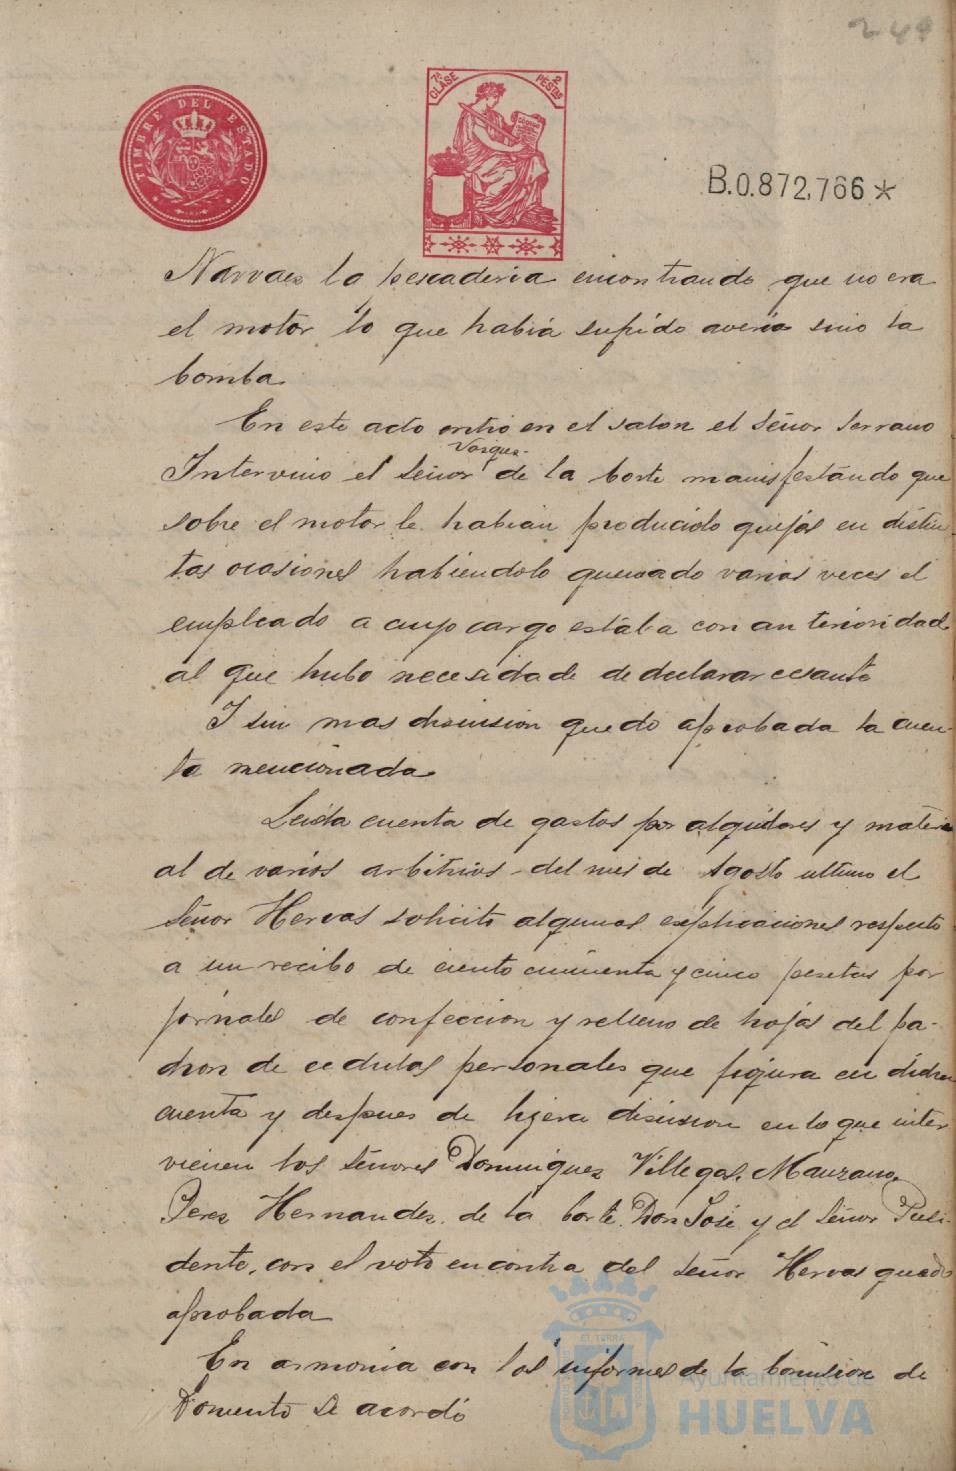 249
TIMBRE DEL ESTADO
7ª CLASE
2 PESTAS
B.0.872,766*
Narvaez la pescaderia encontrando que no era
el motor lo que habia sufrido averia sino la
bomba.
En este acto entró en el salon el Señor Serrano
Vazquez
Intervino el Señor de la Corte manifestando que
sobre el motor le habian producido quejas en distin
tas ocasiones habiendolo quemado varias veces el
empleado a cuyo cargo estaba con anterioridad
al que hubo necesidad de declarar cesante
Y sin mas discusion quedo aprobada la cuen
ta mencionada.
Leida cuenta de gastos por alquileres y materi
al de varios arbitrios del mes de Agosto ultimo el
Señor Hervas solicito algunas explicaciones respecto
a un recibo de ciento cincuenta y cinco pesetas por
jornales de confeccion y relleno de hojas del pa-
dron de cedulas personales que figura en dicha
cuenta y despues de lijera discusion en lo que inter
vienen los señores Dominguez Villegas, Manzano,
Perez Hernandez, de la Corte Don José y el Señor Presi-
dente, con el voto en contra del Señor Hervas quedó
aprobada
En armonia con los informes de la Comision de
Fomento se acordó
EL TERRA
Ayuntamiento de
HUELVA